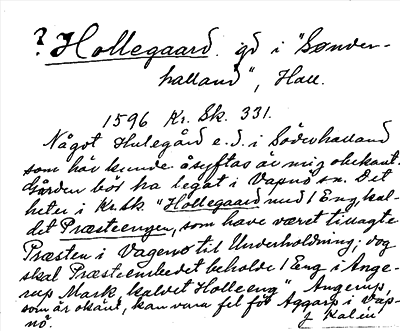 ? Hollegaard. gd i "Sönder-
halland", Hall.
1596 Kr. Sk. 331.
Något Hulegård e.d. i Söderhalland
som här kunde åsyftas är mig obekant.
Gården bör ha legat i Vapnö sn. Det
heter i Kr. Sk "Hollegaard med 1 Eng, kal-
det Præsteengen, som have været tillagte
Præsten i Vagenö til Underholdning; dog
skal Præsteembedet beholde 1 Eng i Ange-
rup Mark kaldet Holleeng", Angerup,
som är okänt, kan vara fel för Aggarp i Vap-
nö.
J Kalén